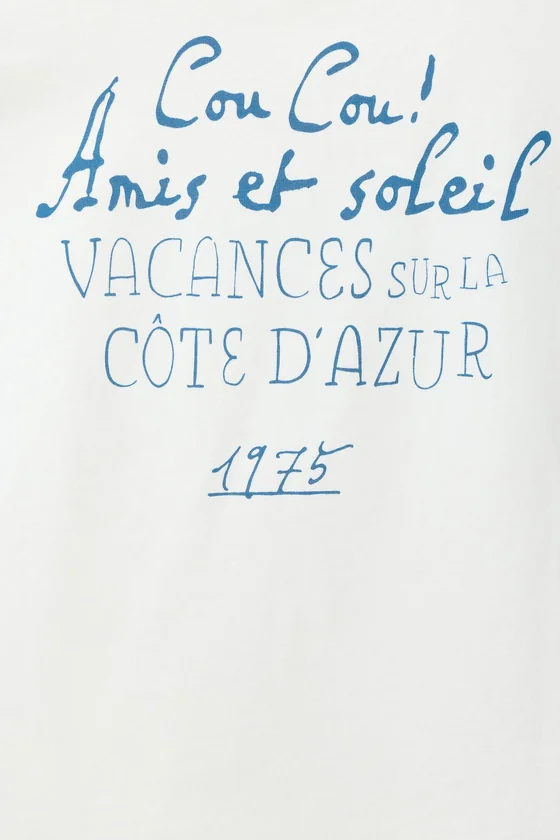 Cou Cou!
Amis et soleil
VACANCES SUR LA
CÔTE D'AZUR
1975